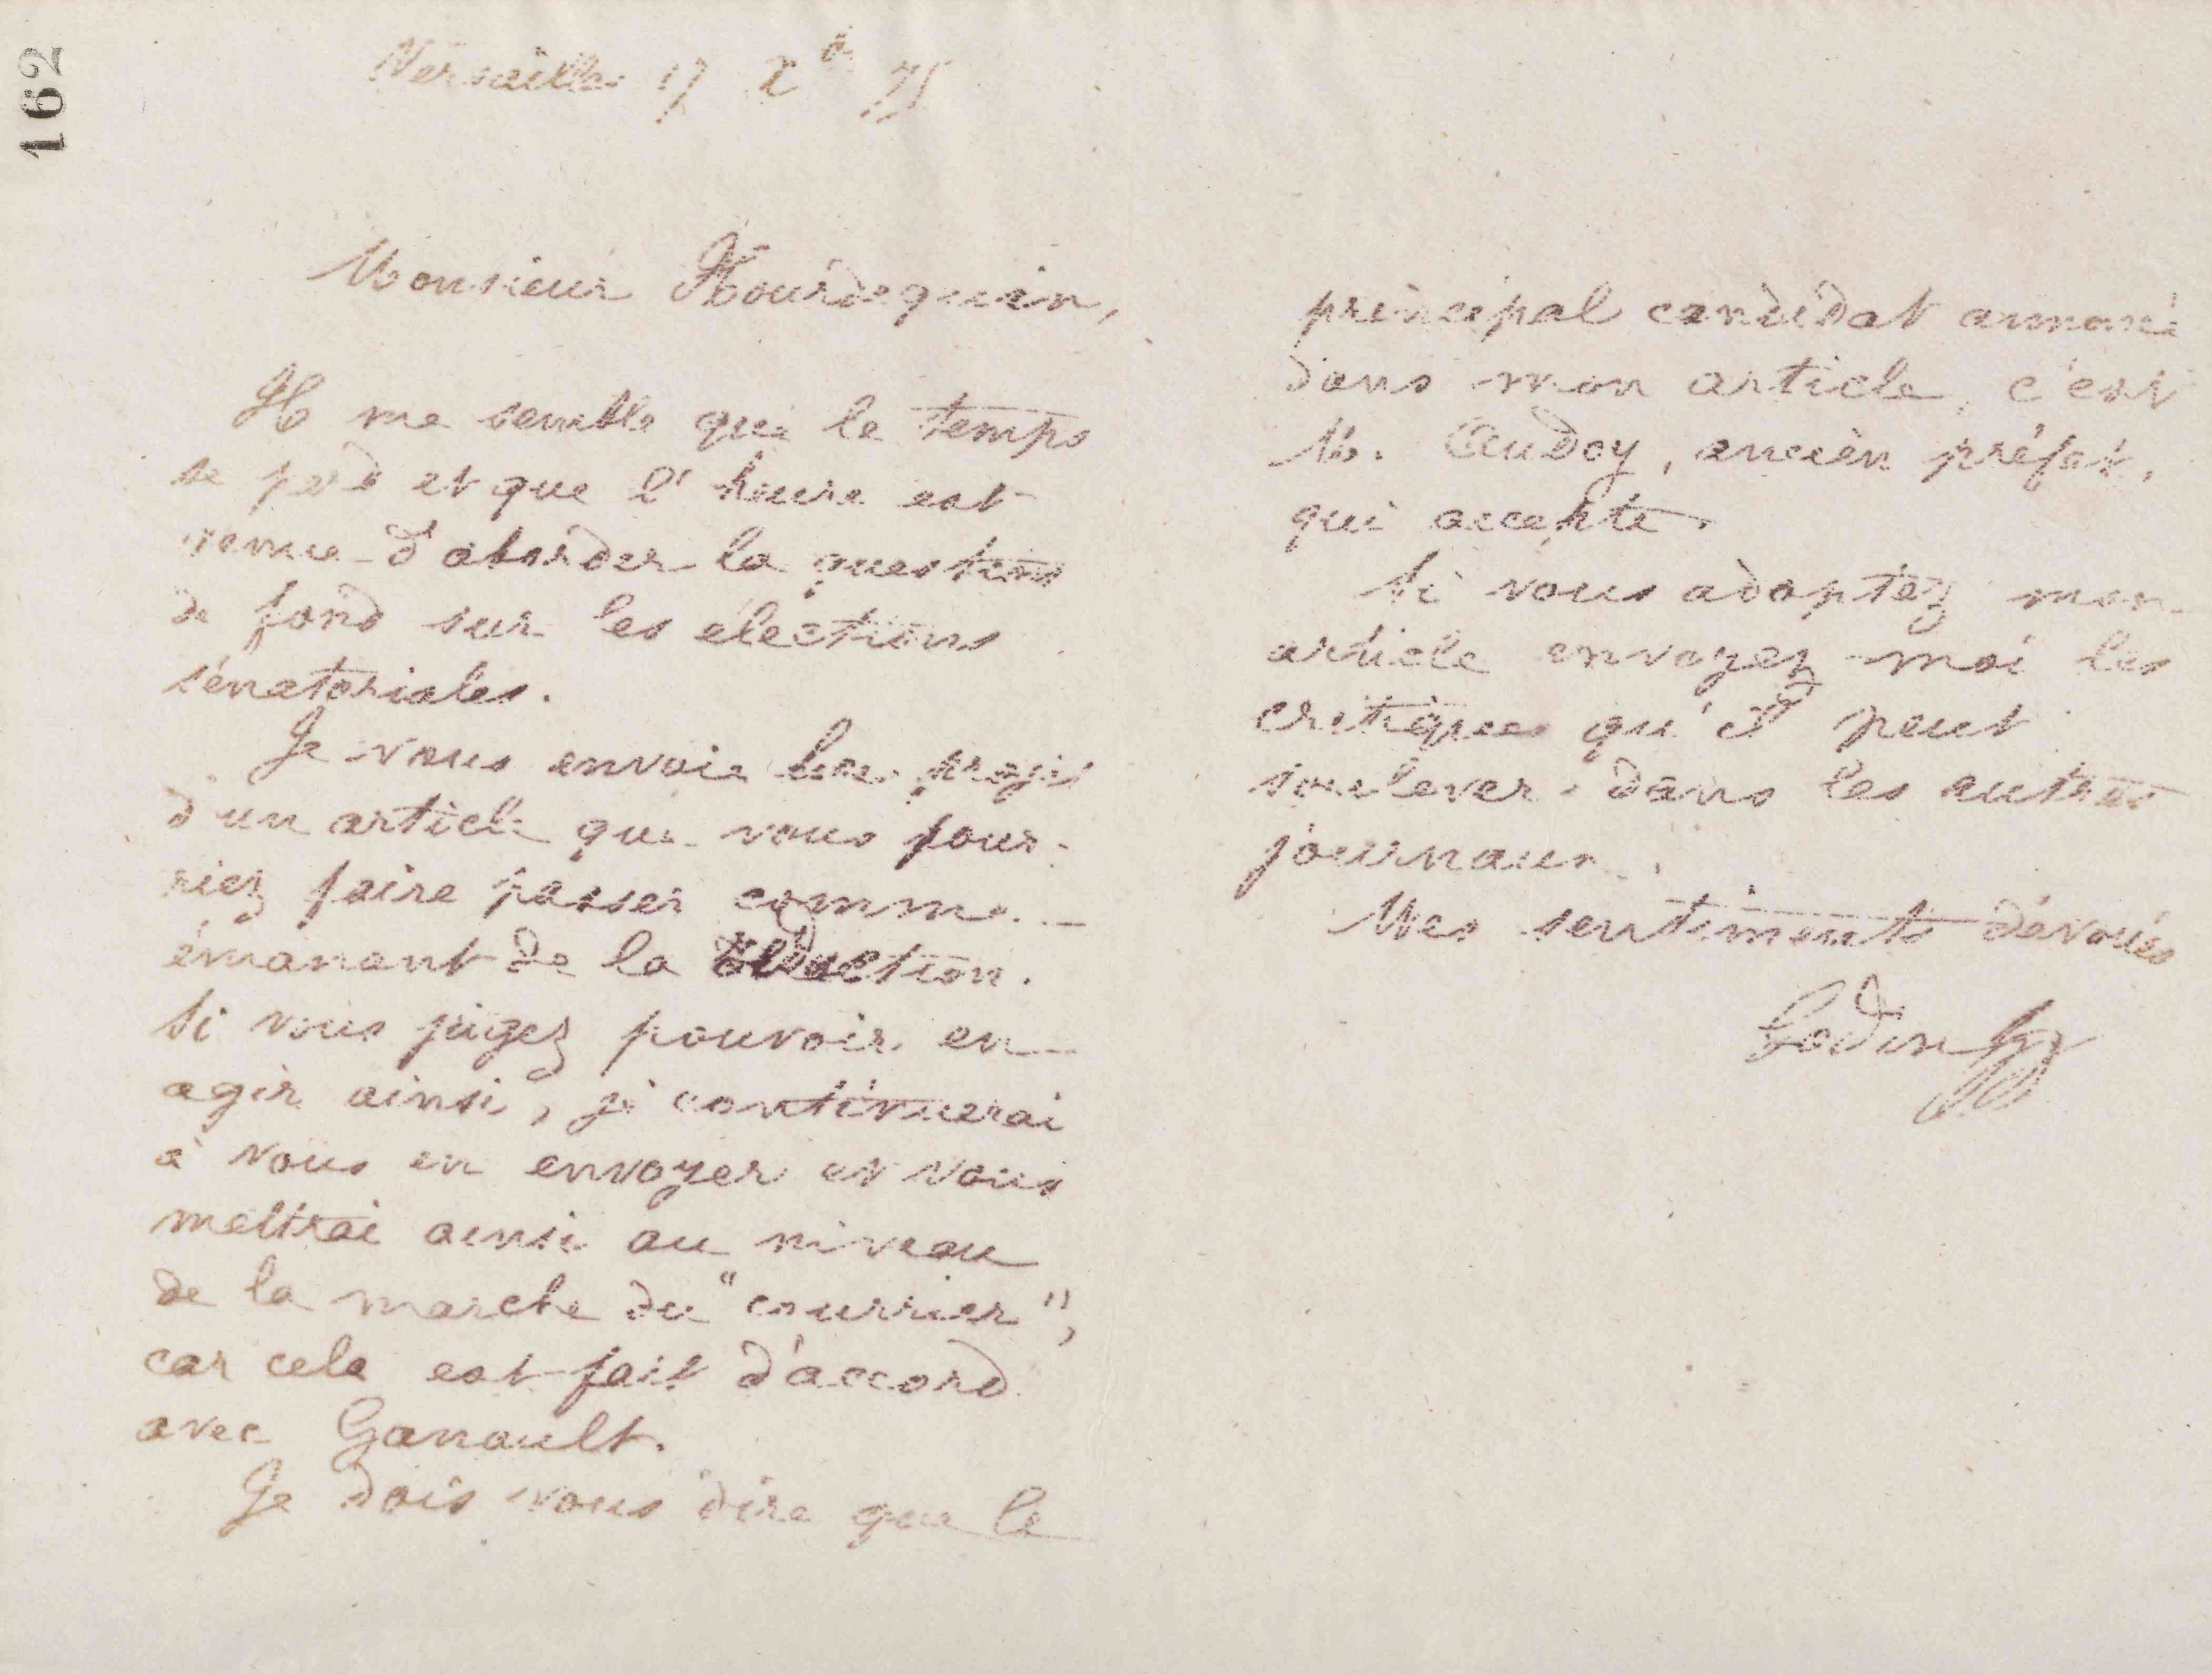 162
Versailles 17 Xbre 75
Monsieur Hourdequin,
Il me semble que le temps
se perd et que l'heure est
venue d'aborder la question
de fond sur les élections
sénatoriales.
Je vous envoie projet
d'un article que vous pour-
riez faire passer comme
émanant de la rédaction.
Si vous jugez pouvoir en
agir ainsi, je continuerai
à vous en envoyer et vous
mettrai ainsi au niveau
de la marche du "courrier",
car cela est fait d'accord
avec Ganault.
Je dois vous dire que le
principal candidat annoncé
dans mon article, c'est
M. Audoy, ancien préfet,
qui accepte.
Si vous adoptez mon
article envoyez-moi les
critiques qu'il peut
soulever dans les autres
journaux.
Mes sentiments dévoués
Godin